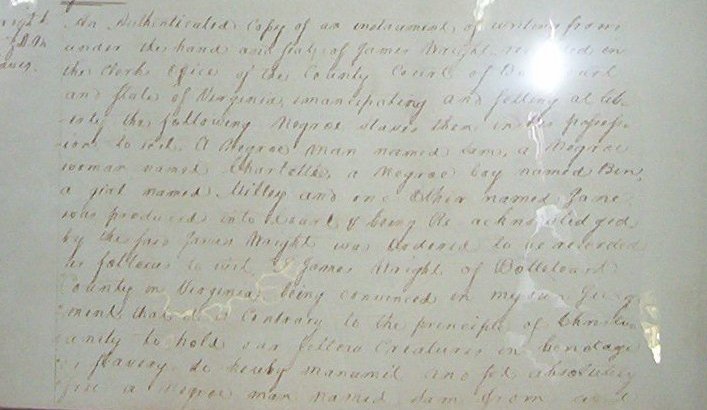 An Authenticated Copy of an instrument of writing from
under the hand and seal of James Wright recorded in
the Clerks Office of the County Court of
and State of Virginia emancipating and setting at lib-
erty the following Negroe slaves then in his possess-
ion to wit. A Negroe man named Sam, a Negroe
woman named Charlotte, a Negroe boy named Ben,
a girl named Milley and one other named Jane
was produced into Court & being Re-acknowledged
by the said James Wright was Ordered to be recorded
as follows to wit I James Wright of Bottetourt
County in Virginia being convinced in my own Judg-
ment that it is Contrary to the principle of Christi-
anity to hold our fellow Creatures in bondage
or Slavery do hereby manumit and set absolutely
free a negroe man named Sam from and